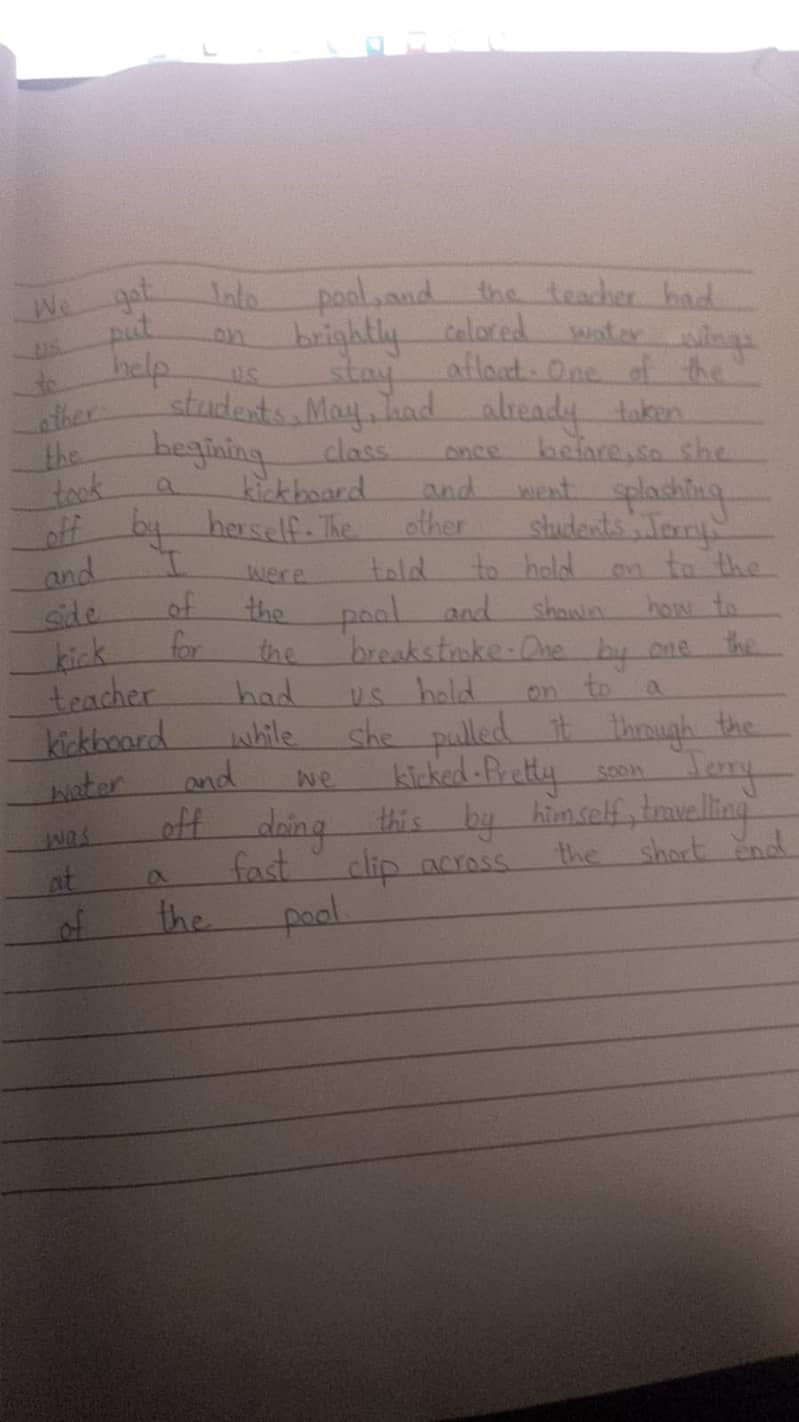 We got into pool, and the teacher had
us put on brightly colored water wings
to help us stay afloat. One of the
other students, May, had already taken
the begining class once before, so she
took a kickboard and went splashing
off by herself. The other students, Jerry,
and I were told to hold on to the
side of the pool and shown how to
kick for the breakstroke. One by one the
teacher had us hold on to a
kickboard while she pulled it through the
water and we kicked. Pretty soon Jerry
was off doing this by himself, travelling
at a fast clip across the short end
of the pool